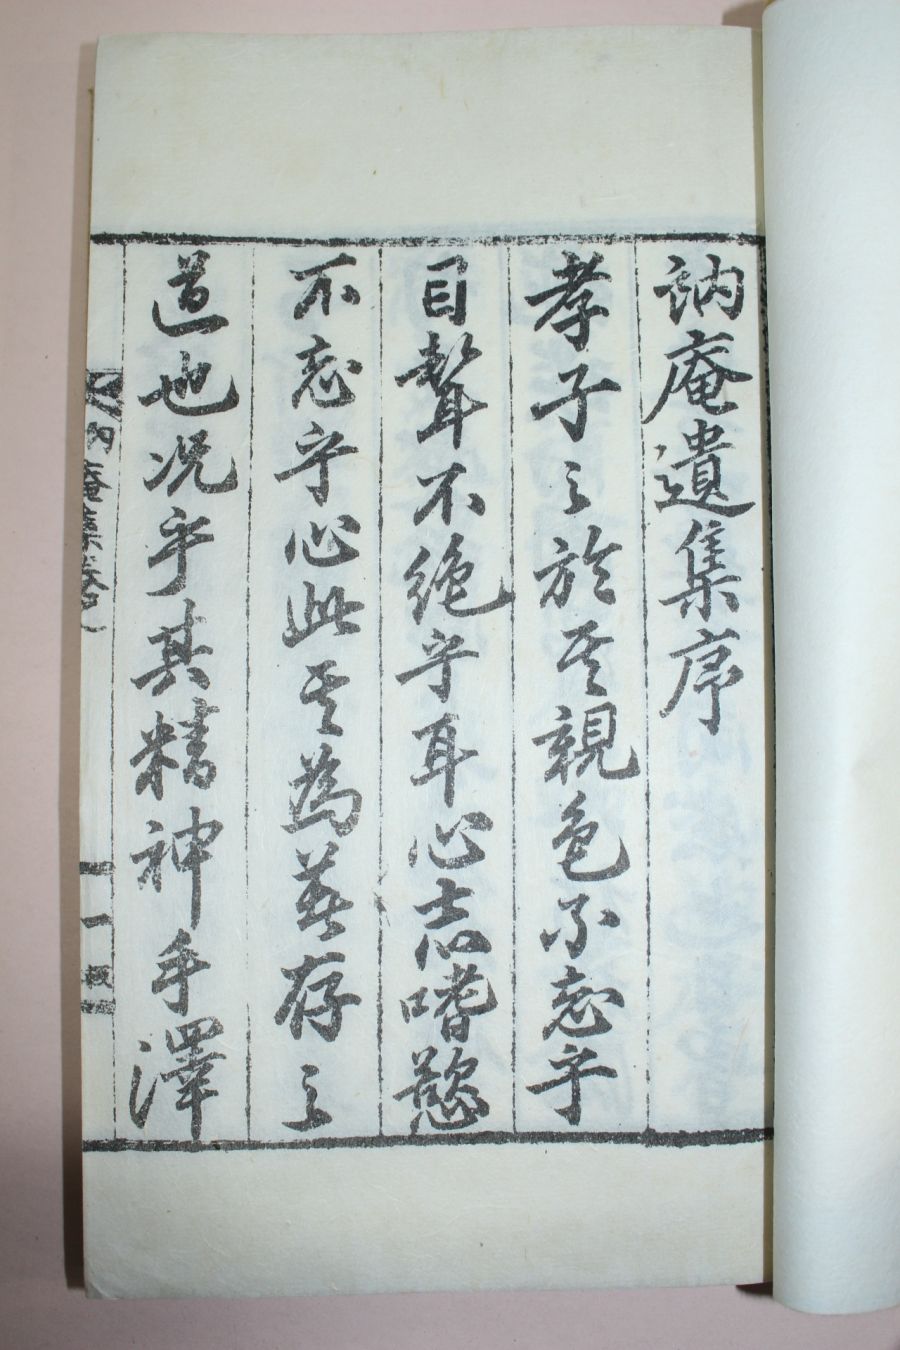 訥庵遺集序
孝子之於其親色不忘乎
目聲不絶乎耳心志嗜慾
不忘乎心此其為著存之
道也况乎其精神手澤
訥庵集卷之一
一